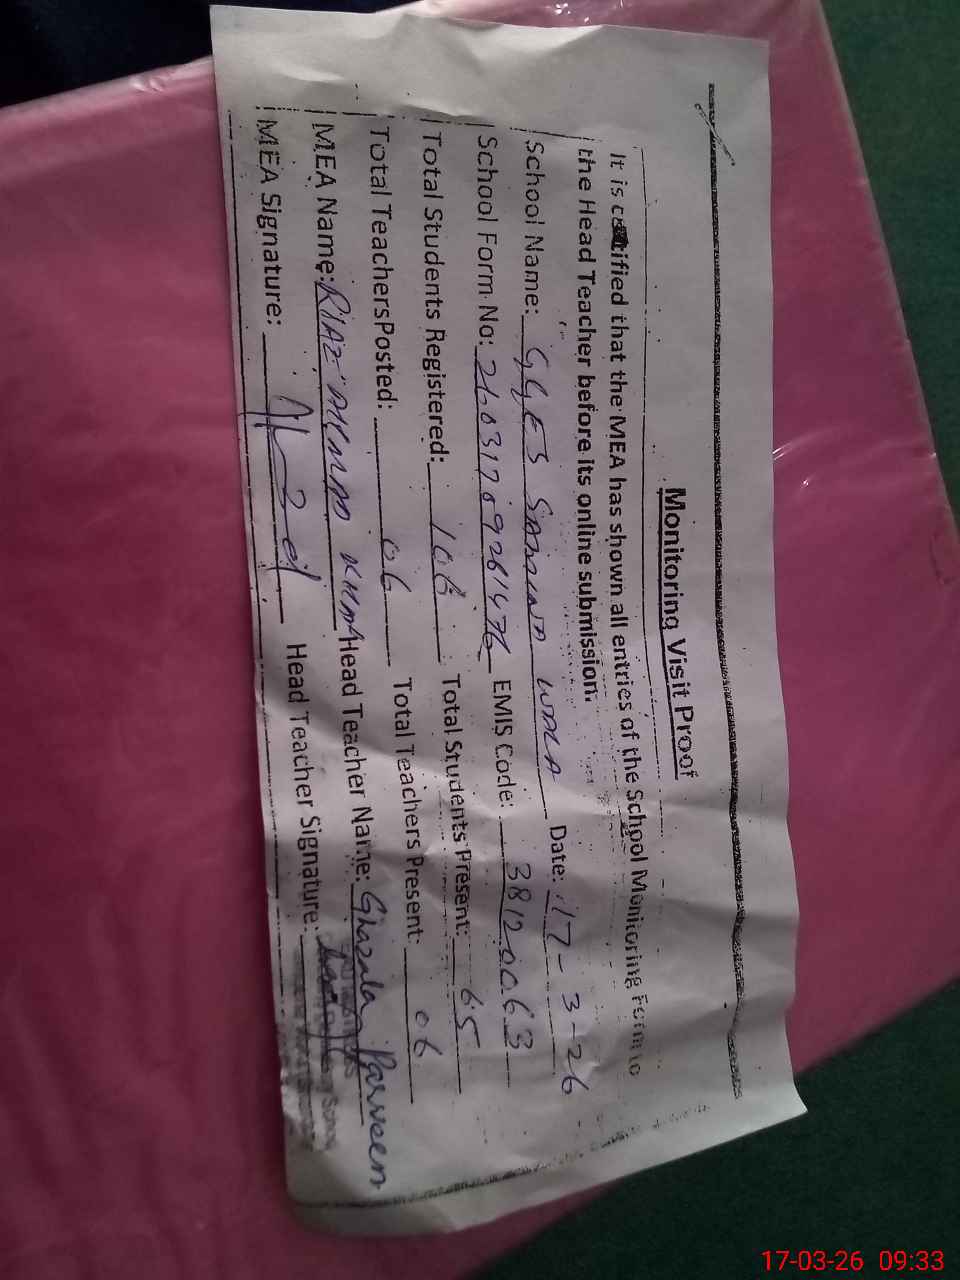 Monitoring Visit Proof
It is certified that the MEA has shown all entries of the School Monitoring Form to
the Head Teacher before its online submission.
School Name: GGES SAMUND WALA Date: 17-3-26
School Form No: EMIS Code: 38120063
Total Students Registered: 106 Total Students Present: 65
Total TeachersPosted: 06 Total Teachers Present: 06
MEA Name: RIAZ AHMAD KHAN Head Teacher Name: Ghazala Parveen
MEA Signature: Head Teacher Signature:
17-03-26 09:33